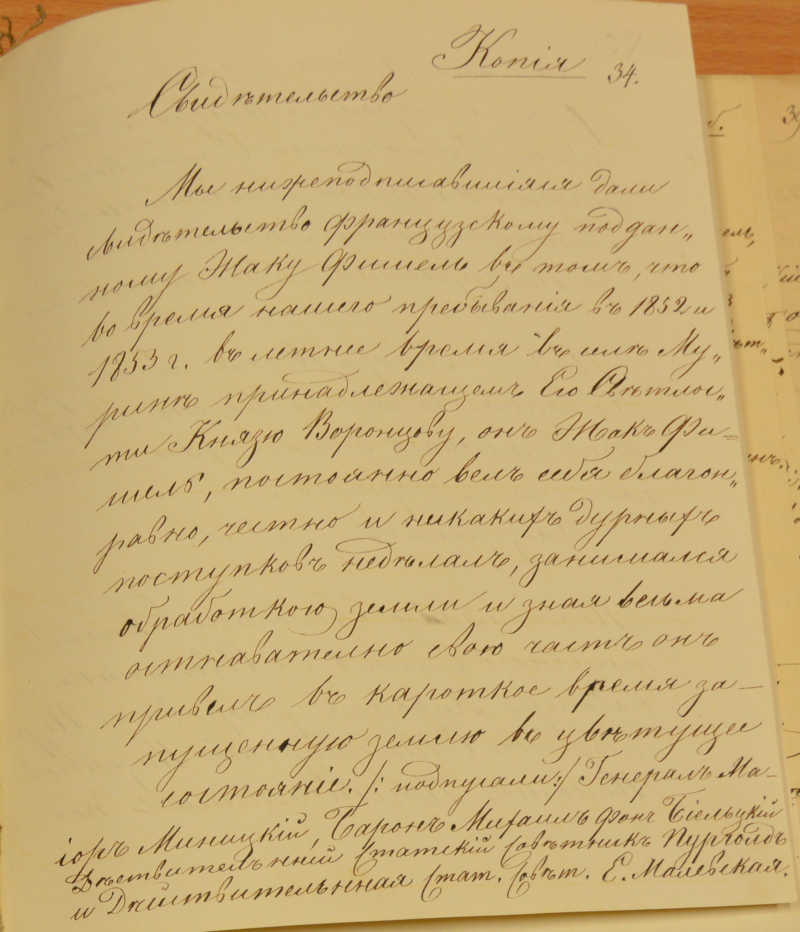 Копія
34.
Свидѣтельство
Мы нижеподписавшіяся дали
свидѣтельство французскому поддан„
ному Жаку Фишель въ томъ, что
во время нашего пребыванія въ 1852 и
1853 г. въ летнее время въ селѣ Му„
ринѣ принадлежащемъ Его Свѣтлос„
ти Князю Воронцову, онъ Жакъ Фи=
шель, постоянно велъ себя благон„
равно, честно и никакихъ дурныхъ
поступковъ недѣлалъ, занимался
обработкою земли и зная весьма
основателно свою часть онъ
привелъ въ кароткое время за—
пущенную землю въ цвѣтущее
состояніе. /: подписали:/ Генералъ Ма–
іоръ Миницкій, Баронъ Михаилъ фонъ
Дѣествителънній Статскій Совѣтникъ
и Дѣйствительнная Стат. Совѣт. Е. Малевская.